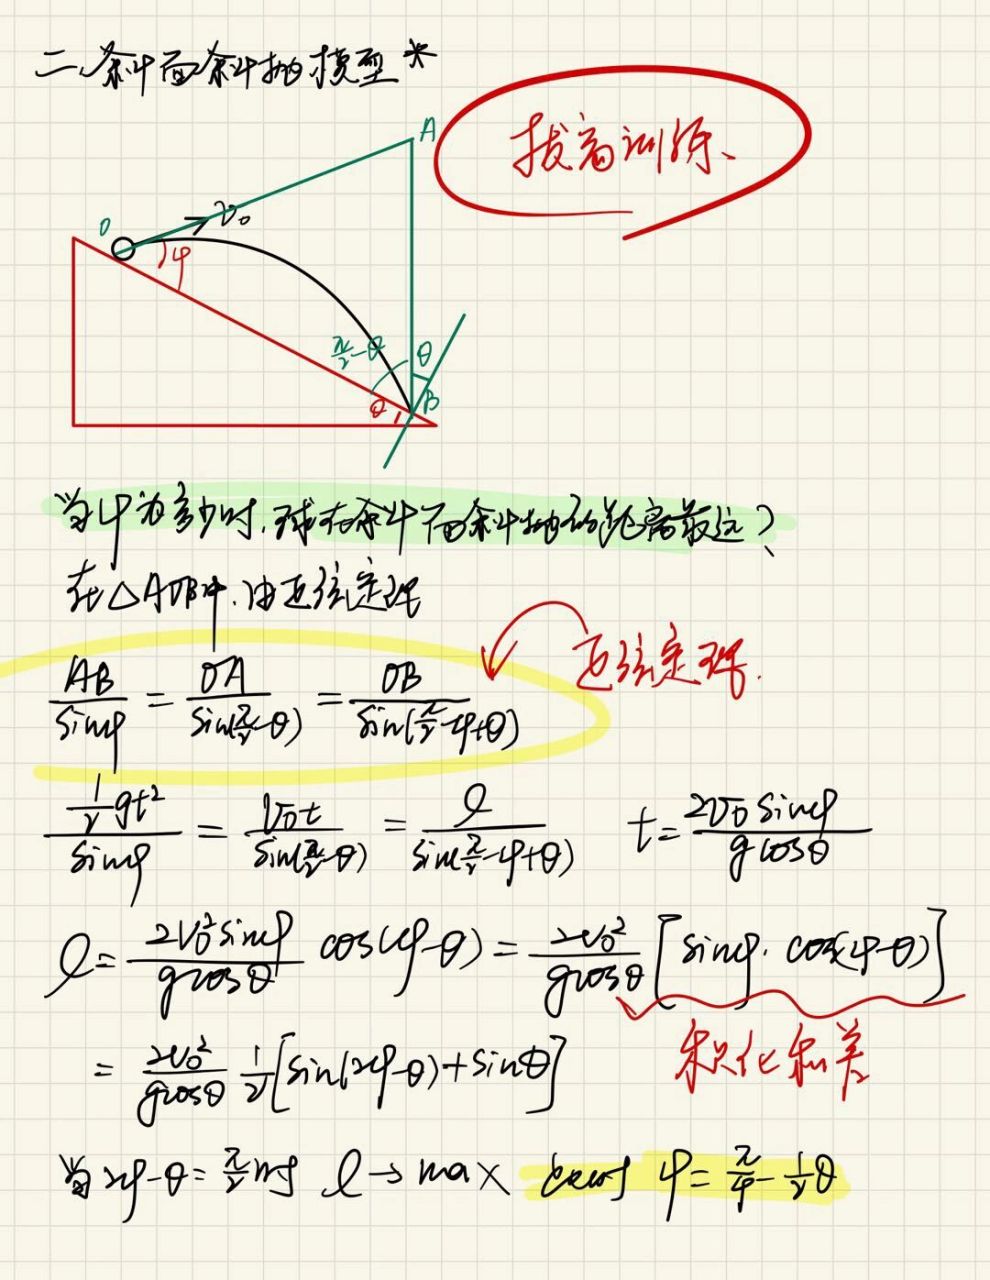 二、斜面斜抛模型*
拔高训练、
A
O
v₀
φ
π/2-θ
θ
θ
B
当φ为多少时,球在斜面斜抛的距离最远?
在△AOB中,由正弦定理
正弦定理.
AB/sinφ = OA/sin(π/2-θ) = OB/sin(π/2-φ+θ)
½gt²/sinφ = v₀t/sin(π/2-θ) = l/sin(π/2-φ+θ) t=2v₀sinφ/gcosθ
l=2v₀²sinφ/gcosθ cos(φ-θ)=2v₀²/gcosθ[sinφ·cos(φ-θ)]
积化和差
=2v₀²/gcosθ ½[sin(2φ-θ)+sinθ]
当2φ-θ=π/2时 l→max φ=π/4-½θ